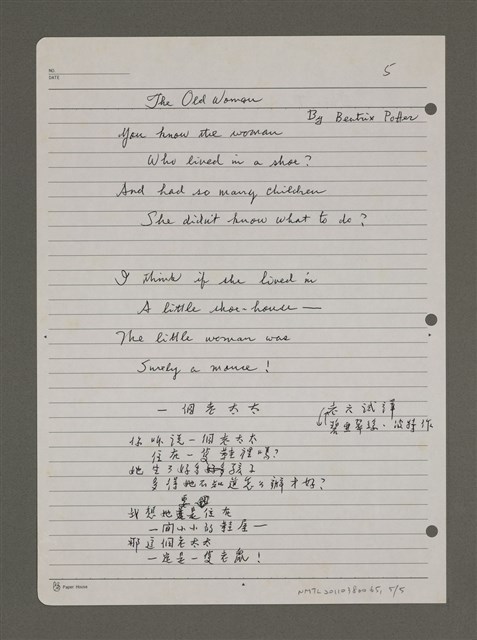 NO.
DATE
5
The Old Woman
By Beatrix Potter
You know the woman
Who lived in a shoe?
And had so many children
She didn't know what to do?
I think if she lived in
A little shoe-house—
The little woman was
Surely a mouse!
一個老太太
老六試譯
碧亞翠絲·波特作
你听說一個老太太
住在一隻鞋裡嗎?
她生了好多孩子
多得她不知道怎么辦才好?
我想她要是住在
一間小小的鞋屋—
那這個老太太
一定是一隻老鼠!
Paper House
NMTL20110380065, 5/5